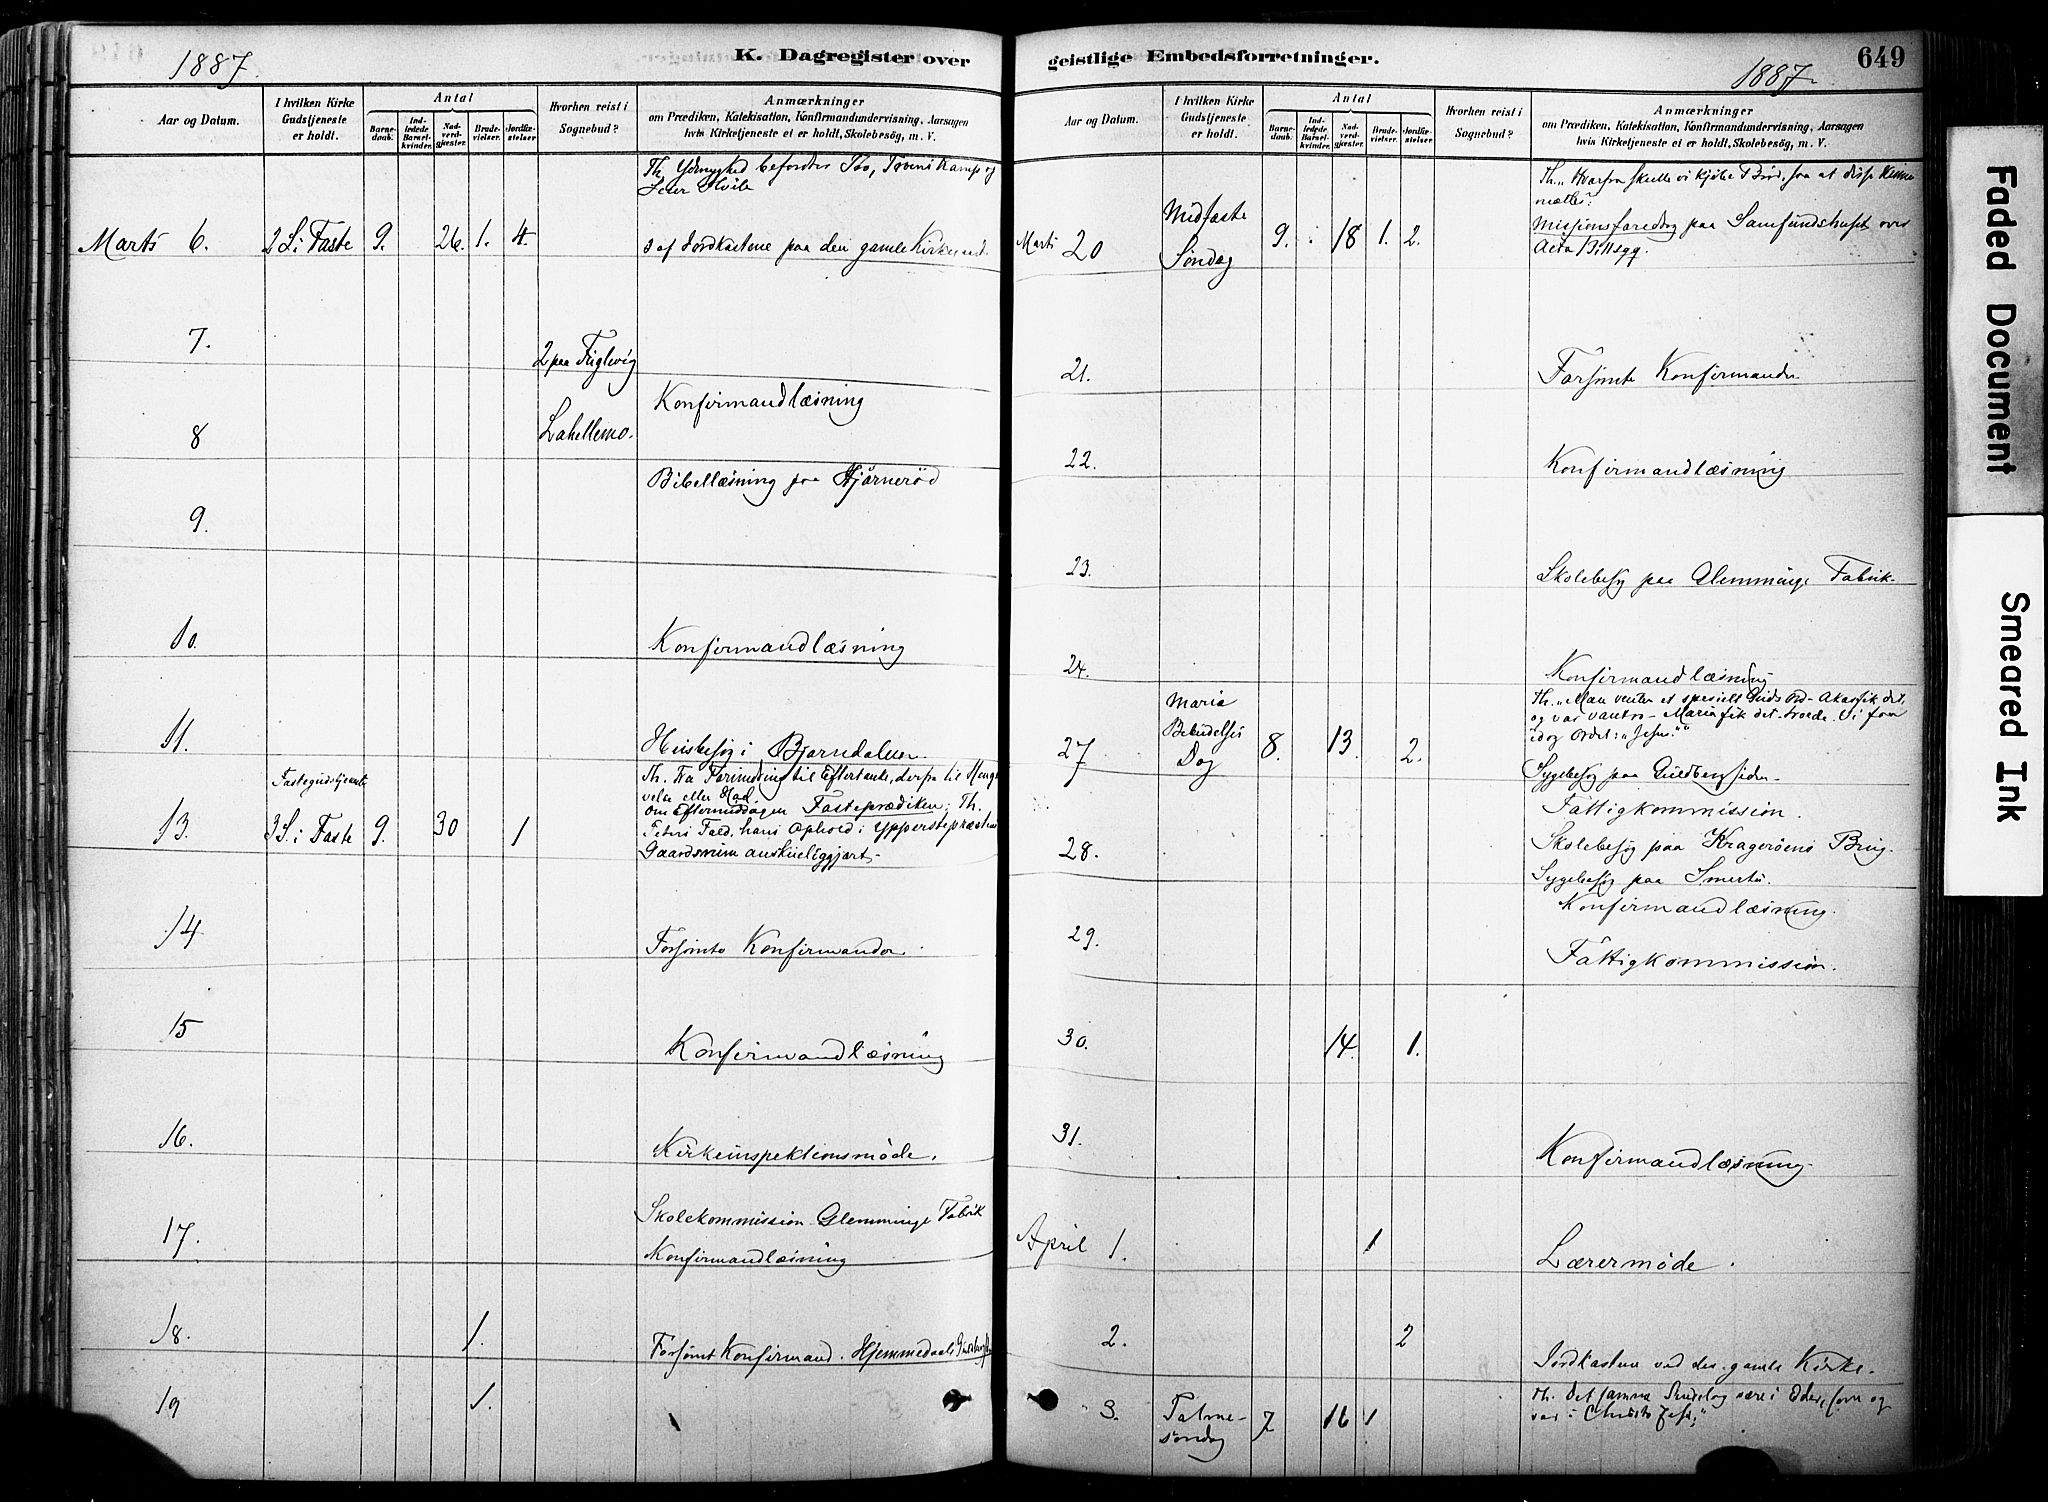 1887.
K. Dagregister over
Aar og Datum.
I hvilken Kirke Gudstjeneste er holdt.
Antal
Barnedaab.
Indledede Barselkvinder.
Nadverdgjæster.
Brudevielser.
Jordfæstelser.
Hvorhen reist i Sognebud?
Anmærkninger
om Prædiken, Katekisation, Konfirmandundervisning, Aarsagen
hvis Kirketjeneste et er holdt, Skolebesög, m. V.
Th. Ydmyghed befordrer Tro, Troens Kamp og
Seier Hvile
Marts 6. 2 S. i Faste 9. 26. 1. 4. 3 af Jordkastene paa den gamle
7. 2 paa Fuglevig
Konfirmandlæsning
8 Lahellemo.
Bibellæsning paa Hjørnerød
9.
10. Konfirmandlæsning
11. Husbesøg i Bjørndalen
Fastegudstjeneste
Th. Fra Forundring til Eftertanke, derpaa til
velse eller Had.
om Eftermiddagen Fasteprædiken; Th.
13. 3 S. i Faste 9. 30 1 Petri Fald, hans Ophold i Ypperstepræstens
Gaardsrum anskueliggjort
14. Forsømte Konfirmander.
15 Konfirmandlæsning
16. Kirkeinspektionsmøde.
Skolekommission Glemminge Fabrik
17. Konfirmandlæsning
18. 1. Forsømt Konfirmand. Hjemmedaab
19 1.
geistlige Embedsforretninger.
1887
649
Aar og Datum.
I hvilken Kirke Gudstjeneste er holdt.
Antal
Barnedaab.
Indledede Barselkvinder.
Nadverdgjæster.
Brudevielser.
Jordfæstelser.
Hvorhen reist i Sognebud?
Anmærkninger
om Prædiken, Katekisation, Konfirmandundervisning, Aarsagen
hvis Kirketjeneste et er holdt, Skolebesög, m. V.
Th. "Hvorfra skulle vi kjøbe Brød, saa at disse kunne
mættes?
Marts 20 Midfaste Søndag 9. 18 1. 2. Missionsforedrag paa Samfundshuset over
21. Forsømte Konfirmander
22. Konfirmandlæsning
23. Skolebesøg paa Glemminge Fabrik
24. Konfirmandlæsning
Th. "Man venter et specielt Guds Ord - Akas fik det,
og var vantro - Maria fik det - troede. Vi faa
idag Ordet: "Jesus.""
27 Maria Bebudelses Dag 8. 13 2. Sygebesøg paa Guldbergsiden
Fattigkommission.
28. Skolebesøg paa Kragerøens Brug.
Sygebesøg paa Smertu.
Konfirmandlæsning.
29. Fattigkommission.
30. 14. 1.
31. Konfirmandlæsning
April 1. 1 Lærermøde.
2. 2 Jordkasten ved den gamle Kirke.
3. Palmesøndag 7 16 1 Th. Det samme Sindelag være i Eder, som og
var i Christo Jesu,"
Faded Document
Smeared Ink